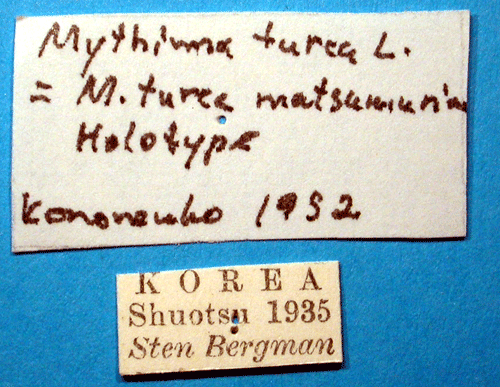 Mythimna turca L.
= M. turca matsumuriana
Holotype
Kononenko 1992
K O R E A
Shuotsu 1935
Sten Bergman